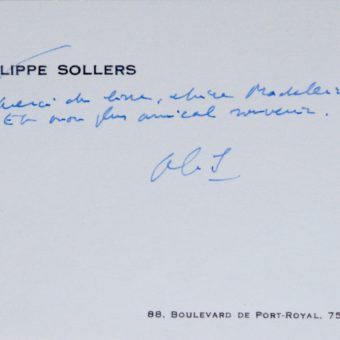 LIPPE SOLLERS
Merci du livre, chère Madelei
Et mon plus amical souvenir.
Ph S
88, BOULEVARD DE PORT-ROYAL, 75